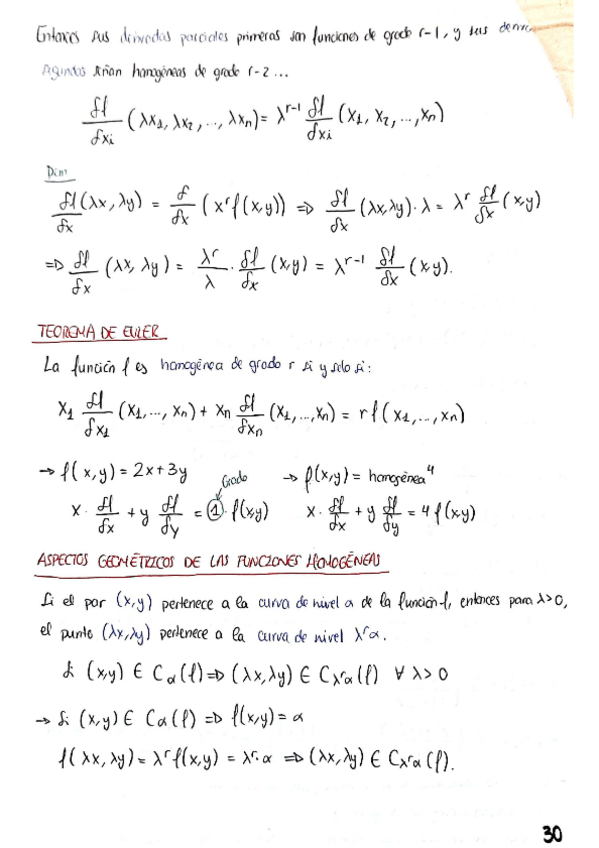 Entonces sus derivadas parciales primeras son funciones de grado r-1, y sus
segundas serían homogéneas de grado r-2 ...
δf/δxi (λx1, λx2, ..., λxn) = λ^(r-1) δf/δxi (x1, x2, ..., xn)
Dim
δf/δx (λx, λy) = δ/δx (x^r f(x,y)) => δf/δx (λx, λy) · λ = λ^r δf/δx (x,y)
=> δf/δx (λx, λy) = λ^r/λ · δf/δx (x,y) = λ^(r-1) δf/δx (x,y).
TEOREMA DE EULER
La función f es homogénea de grado r si y solo si:
x1 δf/δx1 (x1, ..., xn) + xn δf/δxn (x1, ..., xn) = r f(x1, ..., xn)
→ f(x,y) = 2x+3y Grado → f(x,y) = homogénea^4
x · δf/δx + y δf/δy = 1 · f(x,y) x · δf/δx + y δf/δy = 4 f(x,y)
ASPECTOS GEOMÉTRICOS DE LAS FUNCIONES HOMOGÉNEAS
Si el par (x,y) pertenece a la curva de nivel α de la función f, entonces para λ>0,
el punto (λx, λy) pertenece a la curva de nivel λ^r α.
Si (x,y) ∈ Cα(f) => (λx, λy) ∈ Cλ^rα(f) ∀ λ>0
→ Si (x,y) ∈ Cα(f) => f(x,y) = α
f(λx, λy) = λ^r f(x,y) = λ^r · α => (λx, λy) ∈ Cλ^rα(f).
30